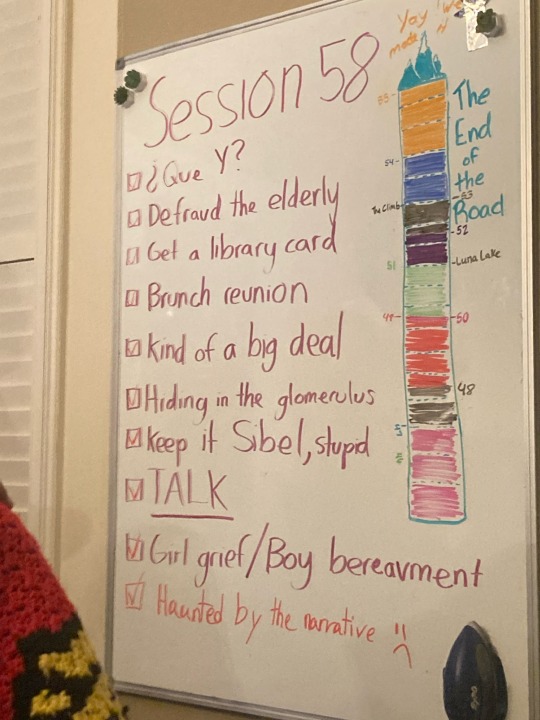 Session 58
¿Que Y?
Defraud the elderly
Get a library card
Brunch reunion
Kind of a big deal
Hiding in the glomerulus
Keep it Sibel, stupid
TALK
Girl grief/Boy bereavment
Haunted by the narrative
Yay! We
made it
The
End
of
the
Road
55
54
53
The Climb
52
Luna Lake
51
50
49
48